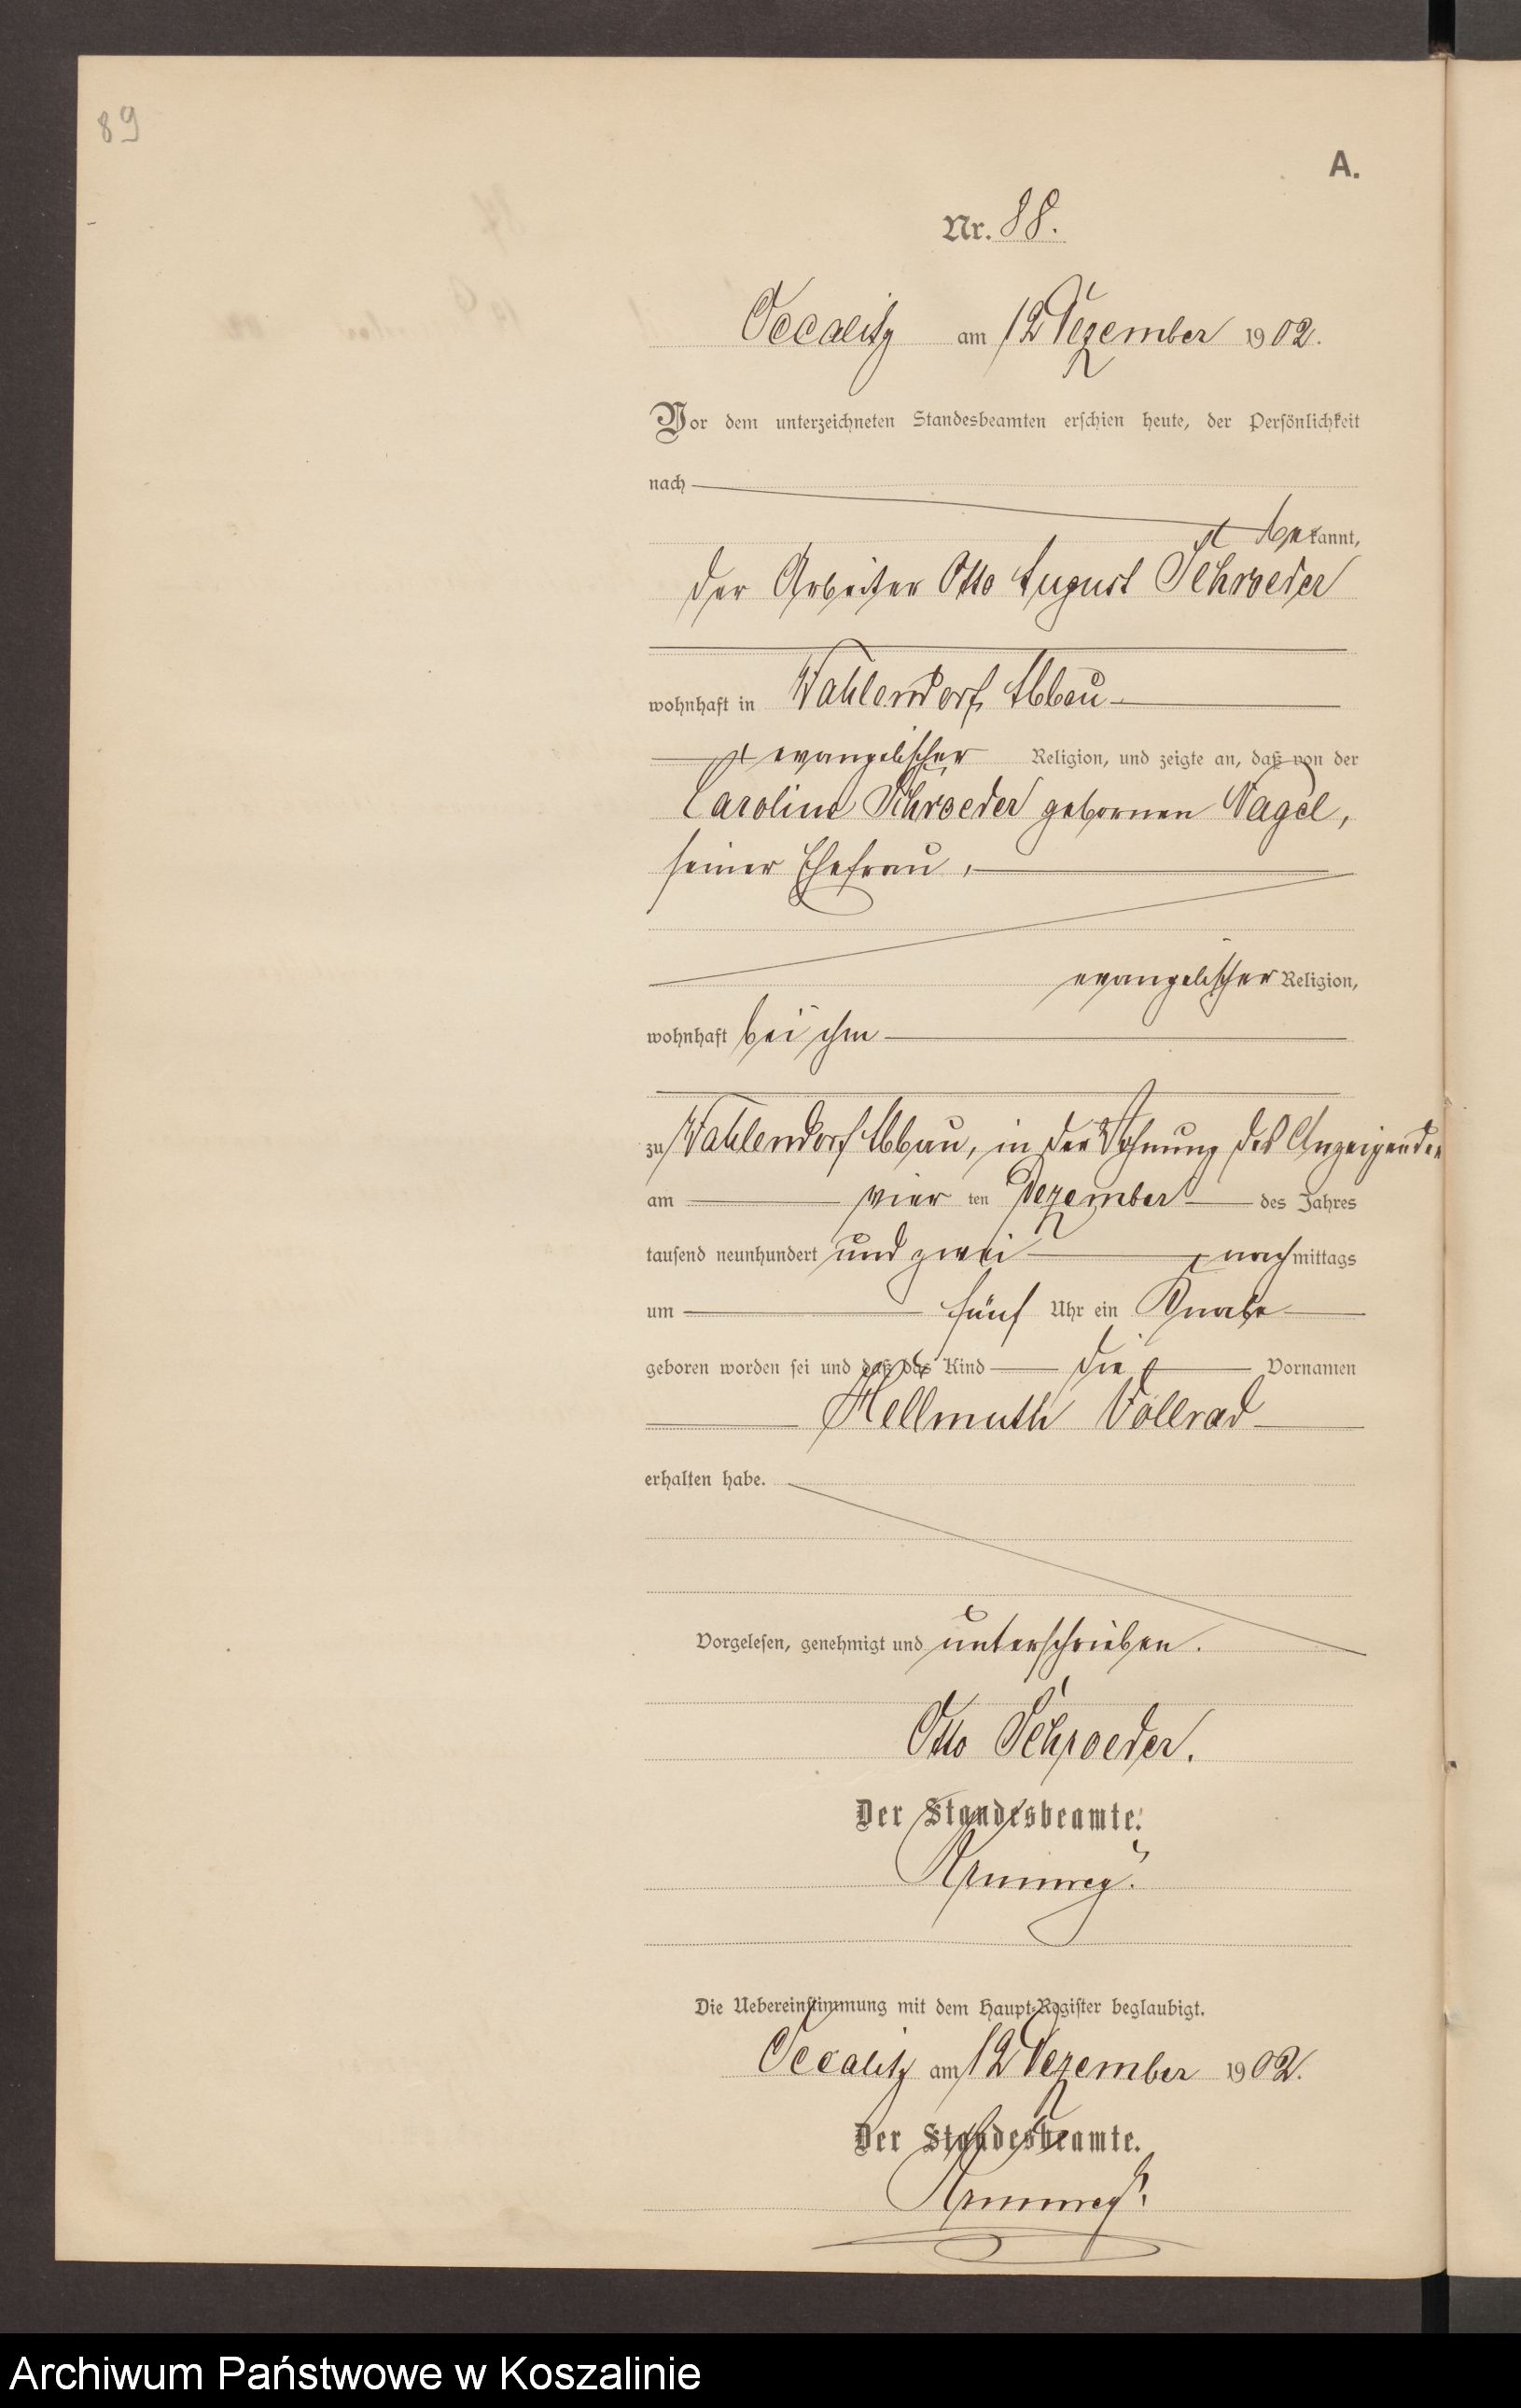 89
A.
Nr. 88.
Occalitz am 12 Dezember 1902.
Vor dem unterzeichneten Standesbeamten erschien heute, der Persönlichkeit
nach
bekannt,
der Arbeiter Otto August Schroeder
wohnhaft in Wahlendorf Abbau
evangelischer Religion, und zeigte an, daß von der
Caroline Schroeder gebornen Nagel,
seiner Ehefrau,
evangelischer Religion,
wohnhaft bei ihm
zu Wahlendorf Abbau, in der Wohnung des Anzeigenden
am vier ten Dezember des Jahres
tausend neunhundert und zwei nachmittags
um fünf Uhr ein Knabe
geboren worden sei und daß das Kind die Vornamen
Hellmuth Vollrad
erhalten habe.
Vorgelesen, genehmigt und unterschrieben.
Otto Schroeder.
Der Standesbeamte.
Die Uebereinstimmung mit dem Haupt-Register beglaubigt.
Occalitz am 12 Dezember 1902.
Der Standesbeamte.
Archiwum Państwowe w Koszalinie